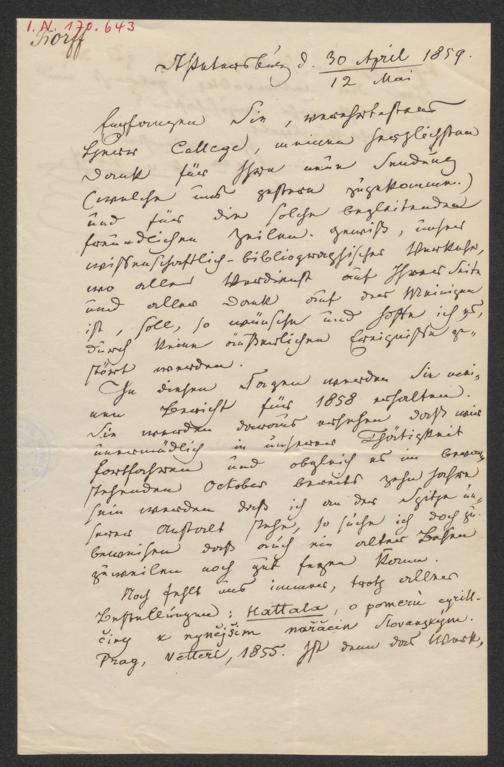 I. N. 170.643
Korff
St Petersburg d. 30 April 1859.
12 Mai
Empfangen Sie, verehrtester
Herr College, meinen herzlichsten
Dank für Ihre neue Sendung
(welche uns gestern zugekommen)
und für die solche begleitenden
freundlichen Zeilen. Gewiß, unser
wissenschaftlich-bibliographischer Verkehr,
wo alles Verdienst auf Ihrer Seite
und aller Dank auf der Meinigen
ist, soll, so wünsche und hoffe ich es,
durch keine äußerlichen Ereignisse ge-
stört werden.
In diesen Tagen werden Sie mei-
nen Bericht für 1858 erhalten.
Sie werden daraus ersehen daß wir
unermüdlich in unserer Thätigkeit
fortfahren und obgleich es im bevor-
stehenden October bereits zehn Jahre
sein werden daß ich an der Spitze un-
serer Anstalt stehe, so suche ich doch zu
beweisen daß auch ein alter Besen
zuweilen noch gut fegen kann.
Noch fehlt uns immer, trotz aller
Bestellungen: Hattala, o poměru cyrill-
činy k nynějším nářečím slovanským.
Prag, 1855. Ist denn das Werk,